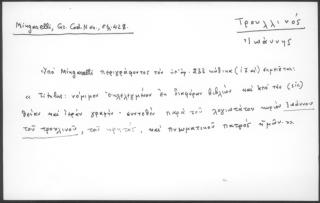 Mingarelli, Gr. Cod. Nan., σελ. 428.
Τρουλλινός
Ἰωάννης
Ὑπὸ Mingarelli περιγράφοντος τὸν ὑπ' ἀρ. 233 κώδικα σημειοῦται:
« Titulus: νόμιμον συλλελεγμένον ἐκ διαφόρων βιβλίων καὶ ἀπὸ τὸν (sic)
θείων καὶ ἱερῶν γραφῶν · συντεθὲν παρὰ τοῦ λογιωτάτου κυρίου Ἰωάννου
τοῦ τρουλινοῦ, τοῦ κρητός, καὶ πνευματικοῦ πατρὸς ἡμῶν. »